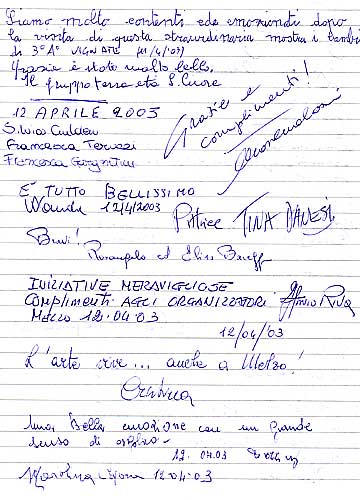 Siamo molto contenti ed emozionati dopo
la visita di questa straordinaria mostra i bambini
di 3ª A VIGNATE (11/4/03)
Grazie è stato molto bello.
Il gruppo terza età S. Cuore
Grazie e
complimenti!
12 APRILE 2003
Silvia
Francesca Teruzzi
Francesca
È TUTTO BELLISSIMO
Wanda 12/4/2003
Patrice TINA DANESI
Bravi!
Rosangela ed Elisa
INIZIATIVE MERAVIGLIOSE
COMPLIMENTI AGLI ORGANIZZATORI
MELZO 12.04.03
12/04/03
L'arte vive... anche a Melzo!
Una Bella emozione con un grande
senso di
12.04.03
12.04.03